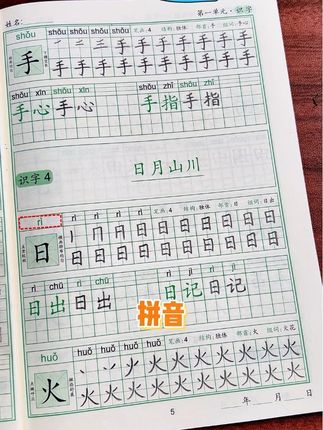 姓名: 第一单元·识字
shǒu shǒu shǒu shǒu shǒu 笔画:4 结构:独体 部首:手 组词:手心
手 手 手 手 手 手
手 手 手 手 手 手 手 手 手
shǒu xīn shǒu xīn shǒu zhǐ shǒu zhǐ
手心手心 手指手指
识字 4 日月山川
rì rì rì rì rì 笔画:4 结构:独体 部首:日 组词:日出
日 日 日 日 日 日 日
日 日 日 日 日 日 日 日 日
rì chū rì chū rì jì rì jì
日出日出 日记日记
拼音
huǒ huǒ huǒ huǒ huǒ 笔画:4 结构:独体 部首:火 组词:火花
火 火 火 火 火 火 火
火 火 火 火 火 火 火 火 火
5 年 月 日